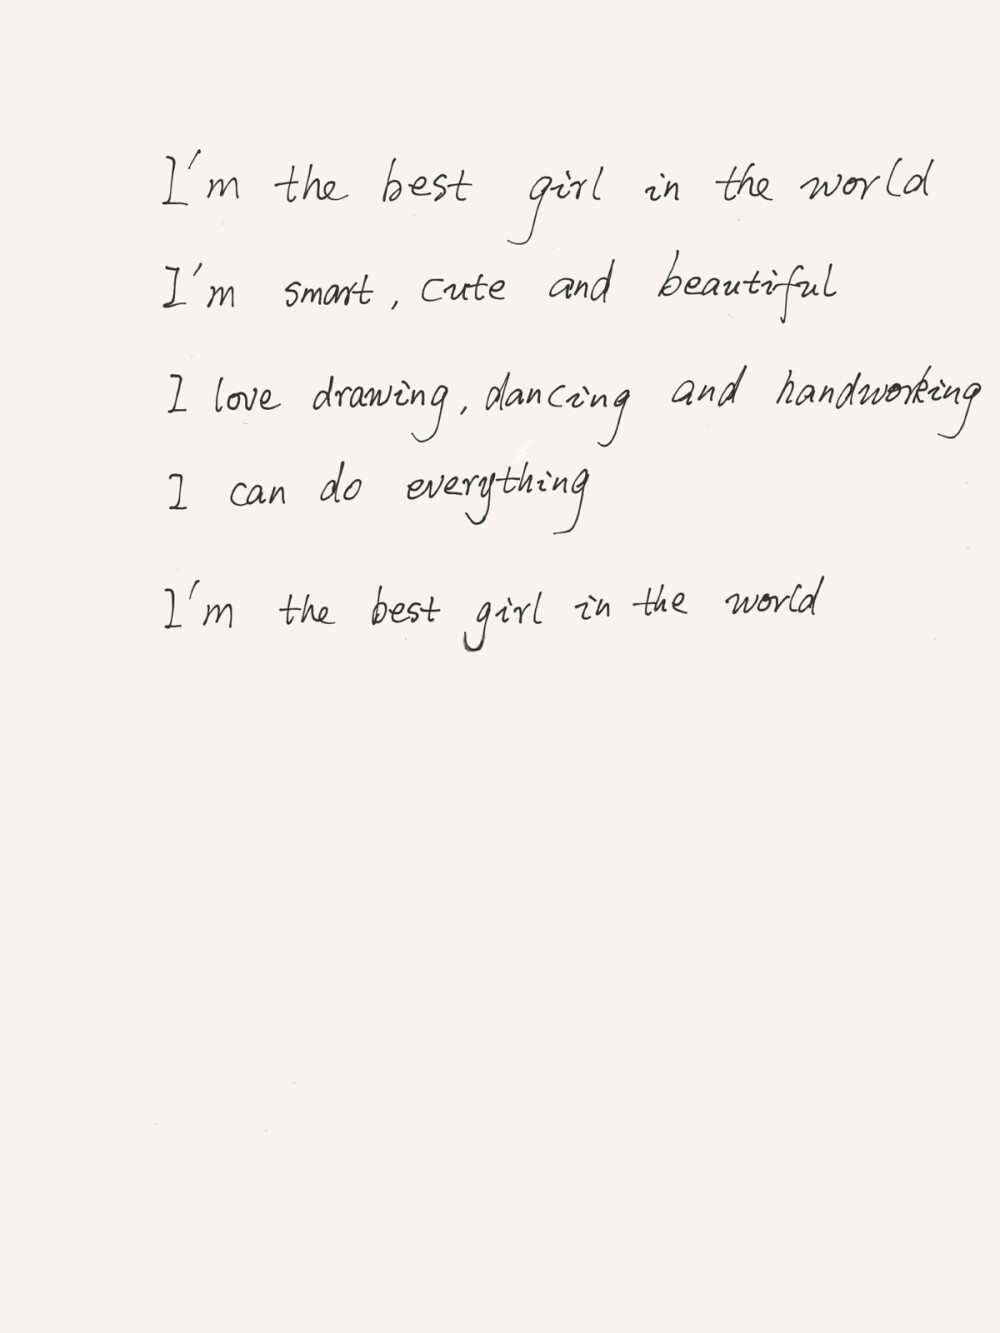 I'm the best girl in the world
I'm smart, cute and beautiful
I love drawing, dancing and handworking
I can do everything
I'm the best girl in the world